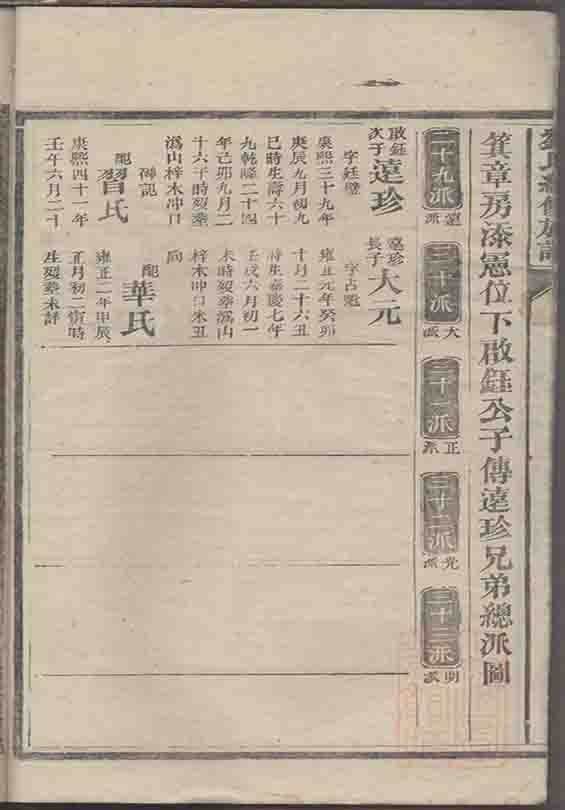 箕章房漆憲位下啟鈺公子傳遠珍兄弟總派圖
二十九派
遠派
三十派
大派
三十一派
正派
三十二派
光派
三十三派
明派
啟鈺
次子
遠珍
字廷璧
康熙三十九年
庚辰九月初九
巳時生壽六十
九乾隆二十四
年己卯九月二
十六子時歿葬
溈山梓木冲口
碑記
配
習氏
康熙四十一年
壬午六月二十
遠珍
長子
大元
字占魁
雍正元年癸卯
十月二十六丑
時生嘉慶七年
壬戌六月初一
未時歿葬溈山
梓木冲口未丑
向
配
華氏
雍正二年甲辰
正月初二寅時
生歿葬未詳